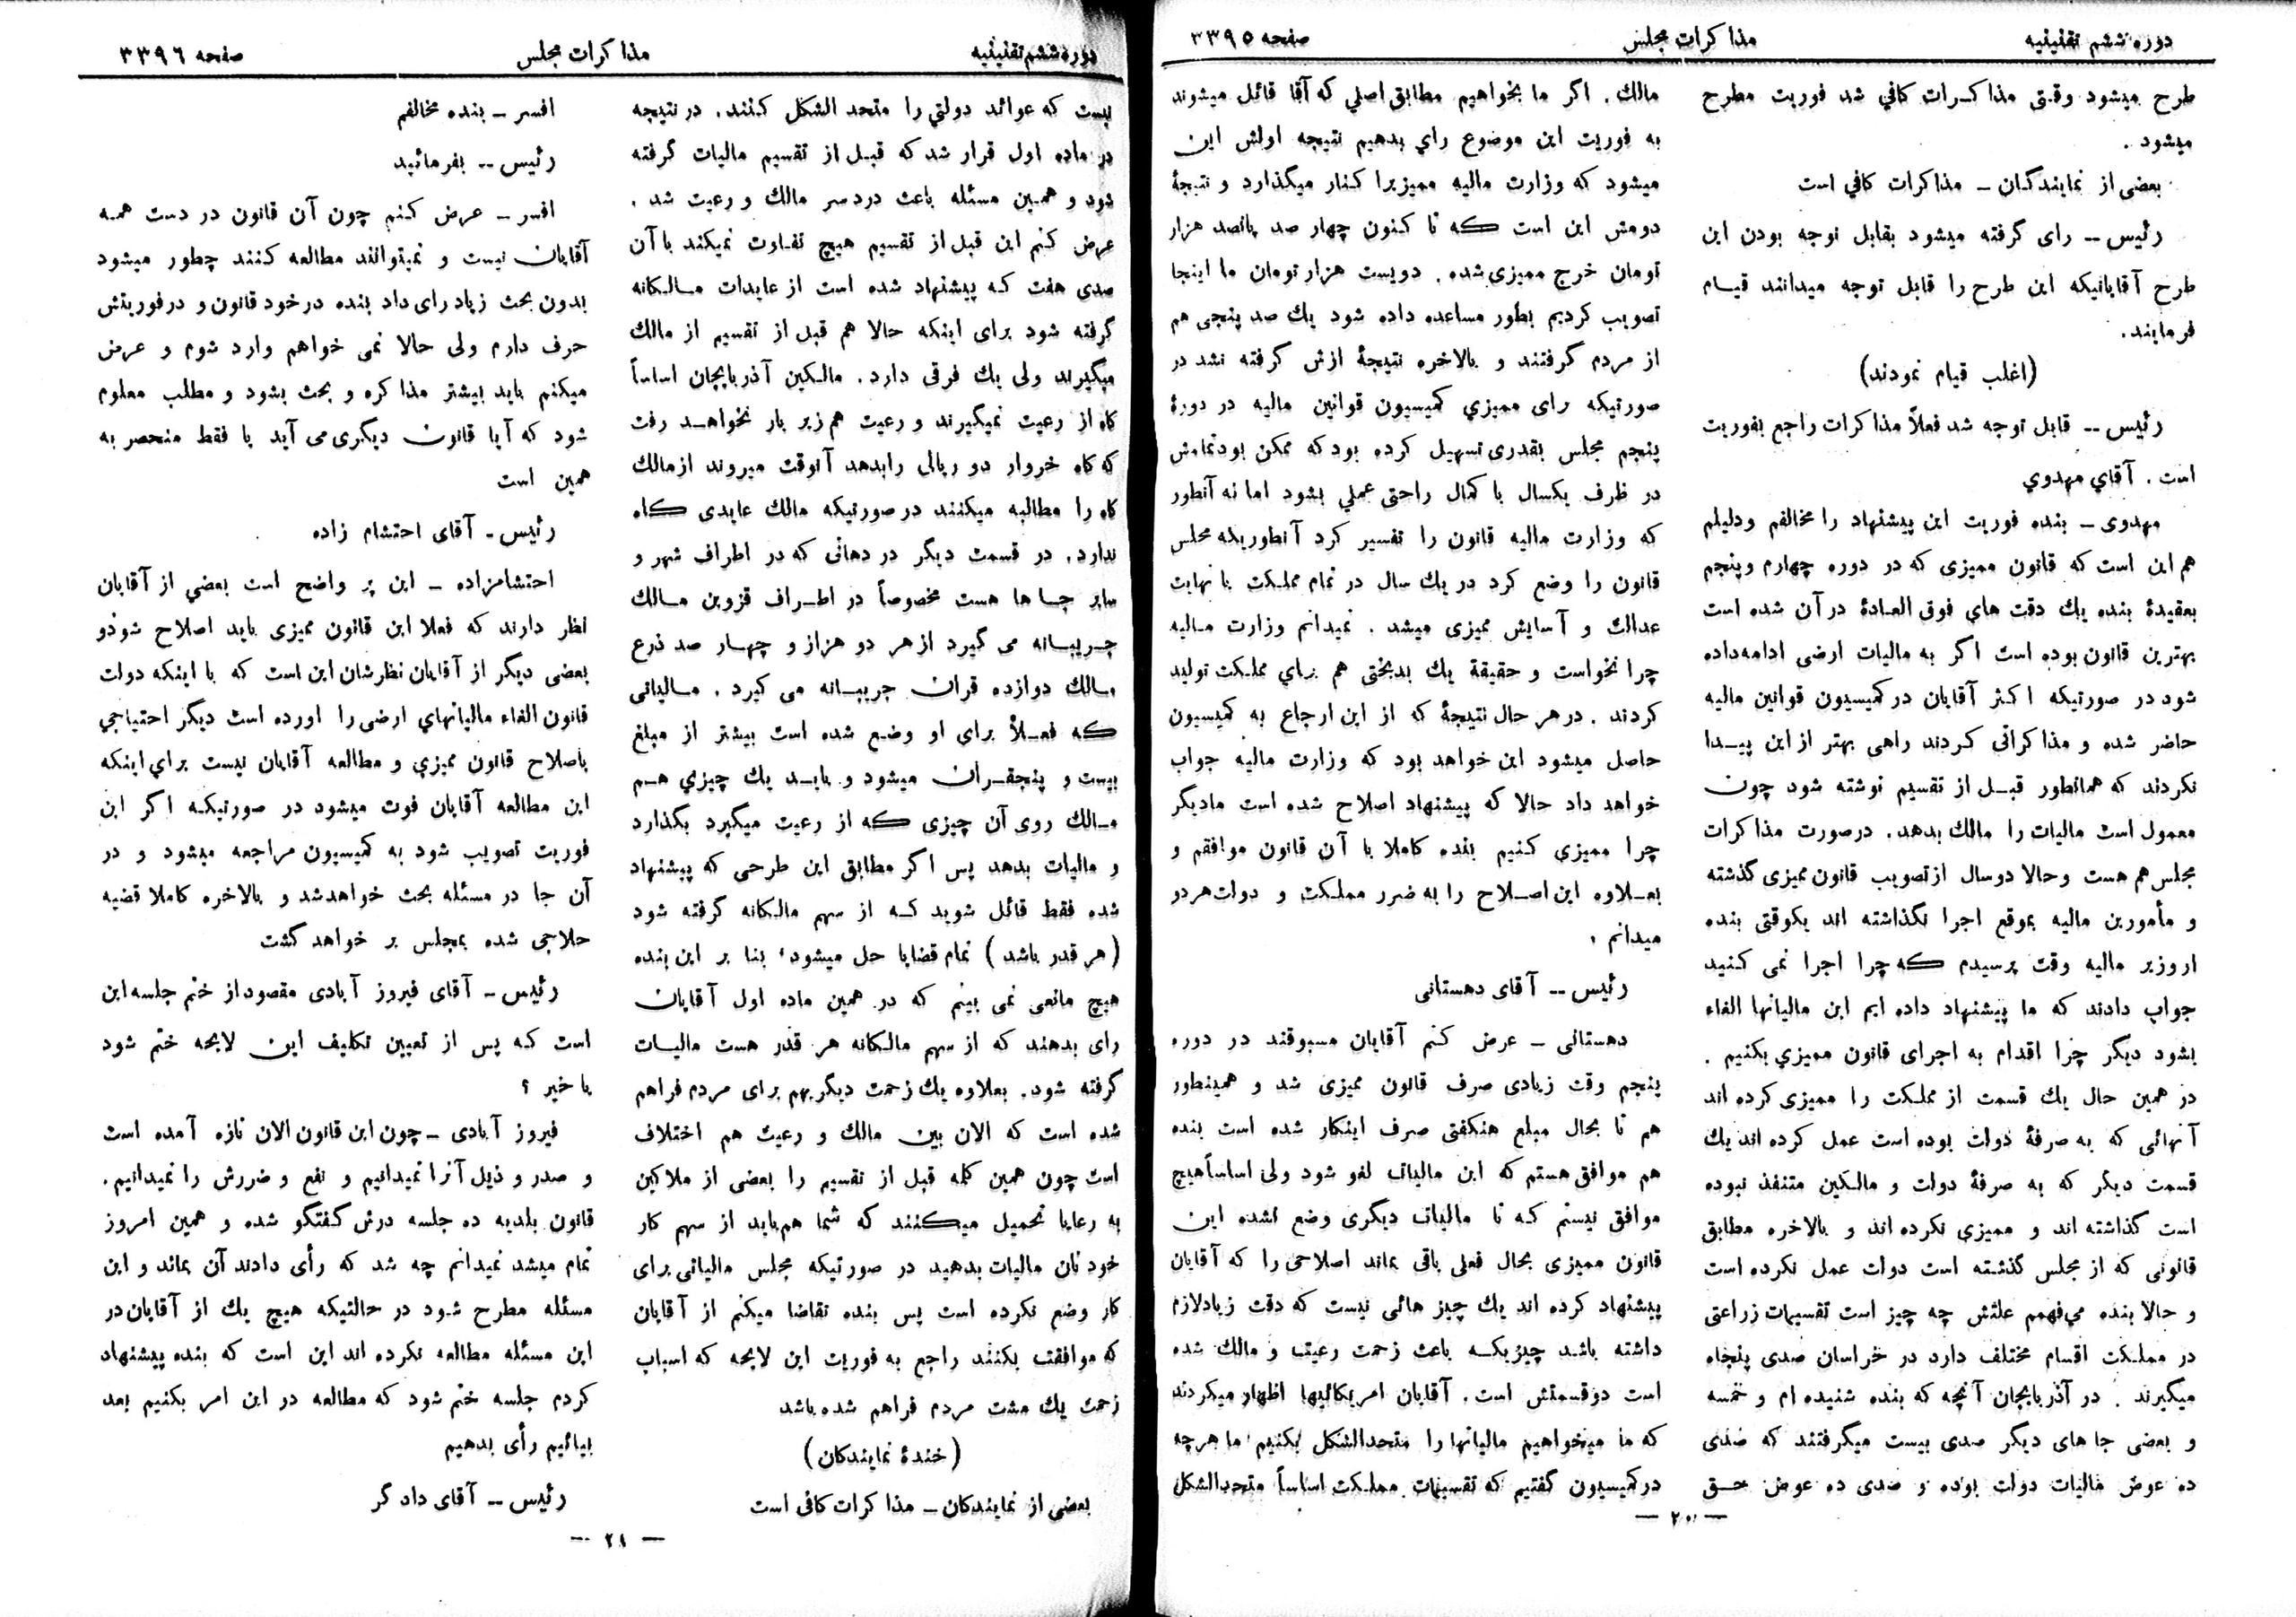 دوره ششم تقنینیه
مذاکرات مجلس
صفحه ۳۳۹۵
طرح میشود وقتی مذاکرات کافی شد فوریت مطرح
میشود .
بعضی از نمایندگان ـ مذاکرات کافی است
رئیس -- رای گرفته میشود بقابل توجه بودن این
طرح آقایانیکه این طرح را قابل توجه میدانند قیام
فرمایند.
(اغلب قیام نمودند)
رئیس -- قابل توجه شد فعلاً مذاکرات راجع بفوریت
است . آقاي مهدوي
مهدوی ـ بنده فوریت این پیشنهاد را مخالفم ودلیلم
هم این است که قانون ممیزی که در دوره چهارم وپنجم
بعقیدهٔ بنده یك دقت هاي فوق العادهٔ در آن شده است
بهترین قانون بوده است اگر به مالیات ارضی ادامه داده
شود در صورتیکه اکثر آقایان در کمیسیون قوانین مالیه
حاضر شده و مذاکراتی کردند راهی بهتر از این پیدا
نکردند که همانطور قبل از تقسیم نوشته شود چون
معمول است مالیات را مالك بدهد. درصورت مذاکرات
مجلس هم هست وحالا دوسال ازتصویب قانون ممیزی گذشته
و مأمورین مالیه بموقع اجرا نگذاشته اند یکوقتی بنده
اروزیر مالیه وقت پرسیدم که چرا اجرا نمی کنید
جواب دادند که ما پیشنهاد داده ایم این مالیاتها الغاء
بشود دیگر چرا اقدام به اجرای قانون ممیزي بکنیم .
در همین حال یك قسمت از مملکت را ممیزی کرده اند
آنهائی که به صرفهٔ دولت بوده است عمل کرده اند یك
قسمت دیگر که به صرفهٔ دولت و مالکین متنفذ نبوده
است گذاشته اند و ممیزی نکرده اند و بالاخره مطابق
قانونی که از مجلس گذشته است دولت عمل نکرده است
و حالا بنده می‌فهمم علتش چه چیز است تقسیمات زراعتی
در مملکت اقسام مختلف دارد در خراسان صدی پنجاه
میگیرند . در آذربایجان آنچه که بنده شنیده ام و خمسه
و بعضی جاهای دیگر صدی بیست میگرفتند که صدی
ده عوض مالیات دولت بوده و صدی ده عوض حق
مالك . اگر ما بخواهیم مطابق اصلي که آقا قائل میشوند
به فوریت این موضوع راي بدهیم نتیجه اولش این
میشود که وزارت مالیه ممیزیرا کنار میگذارد و نتیجهٔ
دومش این است که تا کنون چهار صد پانصد هزار
تومان خرج ممیزی شده . دویست هزار تومان ما اینجا
تصویب کردیم بطور مساعده داده شود یك صد پنجی هم
از مردم گرفتند و بالاخره نتیجهٔ ازش گرفته نشد در
صورتیکه رای ممیزي کمیسیون قوانین مالیه در دورهٔ
پنجم مجلس بقدری تسهیل کرده بود که ممکن بود تمامش
در ظرف یکسال با کمال راحتی عملي بشود اما نه آنطور
که وزارت مالیه قانون را تفسیر کرد آنطوریکه مجلس
قانون را وضع کرد در یك سال در تمام مملکت با نهایت
عدالت و آسایش ممیزی میشد . نمیدانم وزارت مالیه
چرا نخواست و حقیقة یك بدبختی هم براي مملکت تولید
کردند . در هر حال نتیجهٔ که از این ارجاع به کمیسیون
حاصل میشود این خواهد بود که وزارت مالیه جواب
خواهد داد حالا که پیشنهاد اصلاح شده است مادیگر
چرا ممیزی کنیم بنده کاملا با آن قانون موافقم و
بعلاوه این اصلاح را به ضرر مملکت و دولت هردو
میدانم .
رئیس -- آقای دهستانی
دهستانی ـ عرض کنم آقایان مسبوقند در دوره
پنجم وقت زیادی صرف قانون ممیزی شد و همینطور
هم تا بحال مبلغ هنگفتی صرف اینکار شده است بنده
هم موافق هستم که این مالیات لغو شود ولی اساساً هیچ
موافق نیستم که تا مالیات دیگری وضع نشده این
قانون ممیزی بحال فعلی باقی بماند اصلاحی را که آقایان
پیشنهاد کرده اند یك چیز هائی نیست که دقت زیادلازم
داشته باشد چیزیکه باعث زحمت رعیت و مالك شده
است دوقسمتش است . آقایان امریکائیها اظهار میکردند
که ما میخواهیم مالیاتها را متحدالشکل بکنیم ما هرچه
در کمیسیون گفتیم که تقسیمات مملکت اساساً متحدالشکل
— ۲۰ —
دوره ششم تقنینیه
مذاکرات مجلس
صفحه ۳۳۹۶
نیست که عوائد دولتي را متحد الشکل کنند . در نتیجه
در ماده اول قرار شد که قبل از تقسیم مالیات گرفته
شود و همین مسئله باعث دردسر مالك و رعیت شد .
عرض کنم این قبل از تقسیم هیچ تفاوت نمیکند با آن
صدی هفت که پیشنهاد شده است از عایدات مالکانه
گرفته شود برای اینکه حالا هم قبل از تقسیم از مالك
میگیرند ولی یك فرقی دارد . مالکین آذربایجان اساساً
کاه از رعیت نمیگیرند و رعیت هم زیر بار نخواهد رفت
که کاه خروار دو ریالی را بدهد آنوقت میروند از مالك
کاه را مطالبه میکنند در صورتیکه مالك عایدی کاه
ندارد . در قسمت دیگر در دهاتی که در اطراف شهر و
سایر جا ها هست مخصوصاً در اطراف قزوین مالك
جریبانه می گیرد از هر دو هزار و چهار صد ذرع
مالك دوازده قران جریبانه می گیرد . مالیاتی
که فعلاً برای او وضع شده است بیشتر از مبلغ
بیست و پنجقران میشود و باید یك چیزي هم
مالك روی آن چیزی که از رعیت میگیرد بگذارد
و مالیات بدهد پس اگر مطابق این طرحی که پیشنهاد
شده فقط قائل شوید که از سهم مالکانه گرفته شود
(هر قدر باشد) تمام قضایا حل میشود، بنا بر این بنده
هیچ مانعی نمی بینم که در همین ماده اول آقایان
رای بدهند که از سهم مالکانه هر قدر هست مالیات
گرفته شود . بعلاوه یك زحمت دیگر بهم برای مردم فراهم
شده است که الان بین مالك و رعیت هم اختلاف
است چون همین کله قبل از تقسیم را بعضی از ملاکین
به رعایا تحمیل میکنند که شما هم باید از سهم کار
خودتان مالیات بدهید در صورتیکه مجلس مالیاتی برای
کار وضع نکرده است پس بنده تقاضا میکنم از آقایان
که موافقت بکنند راجع به فوریت این لایحه که اسباب
زحمت یك مشت مردم فراهم شده باشد
(خندهٔ نمایندکان)
بعضی از نمایندکان ـ مذاکرات کافی است
افسر ـ بنده مخالفم
رئیس -- بفرمائید
افسر ـ عرض کنم چون آن قانون در دست همه
آقایان نیست و نمیتوانند مطالعه کنند چطور میشود
بدون بحث زیاد رای داد بنده در خود قانون و در فوریتش
حرف دارم ولی حالا نمی خواهم وارد شوم و عرض
میکنم باید بیشتر مذاکره و بحث بشود و مطلب معلوم
شود که آیا قانون دیگری می آید یا فقط منحصر به
همین است
رئیس ـ آقای احتشام زاده
احتشامزاده ـ این پر واضح است بعضي از آقایان
نظر دارند که فعلا این قانون ممیزی باید اصلاح شودو
بعضی دیگر از آقایان نظرشان این است که با اینکه دولت
قانون الغاء مالیاتهاي ارضی را اورده است دیگر احتیاجي
باصلاح قانون ممیزي و مطالعه آقایان نیست براي اینکه
این مطالعه آقایان فوت میشود در صورتیکه اگر این
فوریت تصویب شود به کمیسیون مراجعه میشود و در
آن جا در مسئله بحث خواهدشد و بالاخره کاملا قضیه
حلاجی شده بمجلس بر خواهد گشت
رئیس ـ آقای فیروز آبادی مقصود از ختم جلسه این
است که پس از تعیین تکلیف این لایحه ختم شود
یا خیر ؟
فیروز آبادی ـ چون این قانون الان تازه آمده است
و صدر و ذیل آنرا نمیدانیم و نفع و ضررش را نمیدانیم .
قانون بلدیه ده جلسه درش گفتگو شده و همین امروز
تمام میشد نمیدانم چه شد که رأی دادند آن بماند و این
مسئله مطرح شود در حالتیکه هیچ یك از آقایان در
این مسئله مطالعه نکرده اند این است که بنده پیشنهاد
کردم جلسه ختم شود که مطالعه در این امر بکنیم بعد
بیائیم رأی بدهیم
رئیس -- آقای داد گر
— ۲۱ —